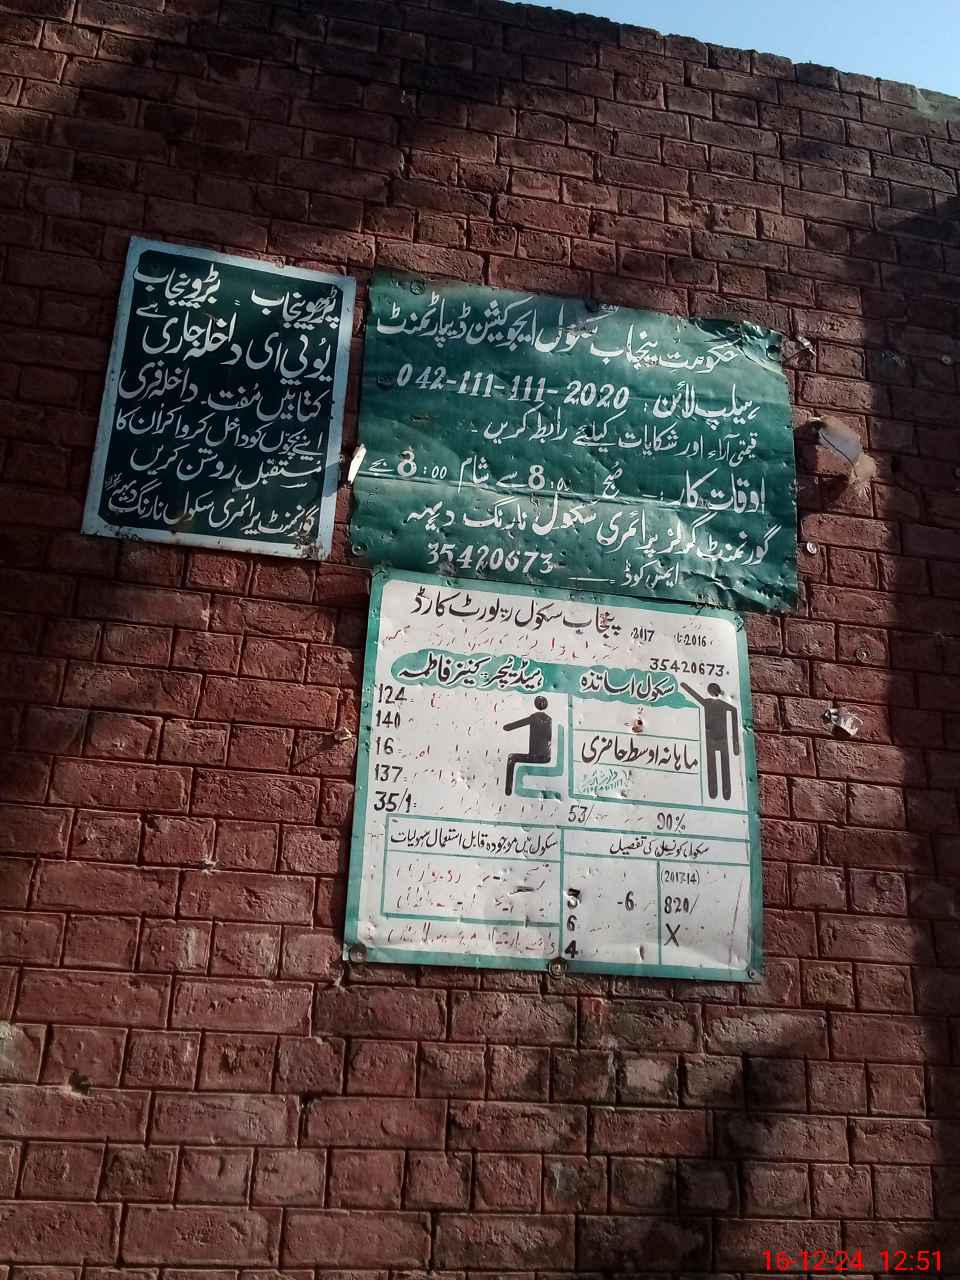 پڑھو پنجاب بڑھو پنجاب
یُو پی ای داخلہ جاری ہے
کتابیں مُفت داخلہ فری
اپنے بچوں کو داخل کروا کر ان کا
مستقبل روشن کریں
گورنمنٹ پرائمری سکول نارنگ دیہہ
حکومت پنجاب سکول ایجوکیشن ڈیپارٹمنٹ
ہیلپ لائن: 042-111-111-2020
قیمتی آراء اور شکایات کیلئے رابطہ کریں -
اوقات کار: صُبح 8:00 سے شام 8:00 بجے
گورنمنٹ گرلز پرائمری سکول نارنگ دیہہ
ایمز کوڈ 35420673
پنجاب سکول رپورٹ کارڈ 2016 تا 2017
35420673
سکول اساتذہ
ہیڈ ٹیچر کنیز فاطمہ
124
140
16
137
35/1
ماہانہ اوسط حاضری
53/
90%
سکول کونسل کی تفصیل
سکول میں موجودہ قابل استعمال سہولیات
(2013-14)
3 -6 820/
6 X
4
16-12-24 12:51